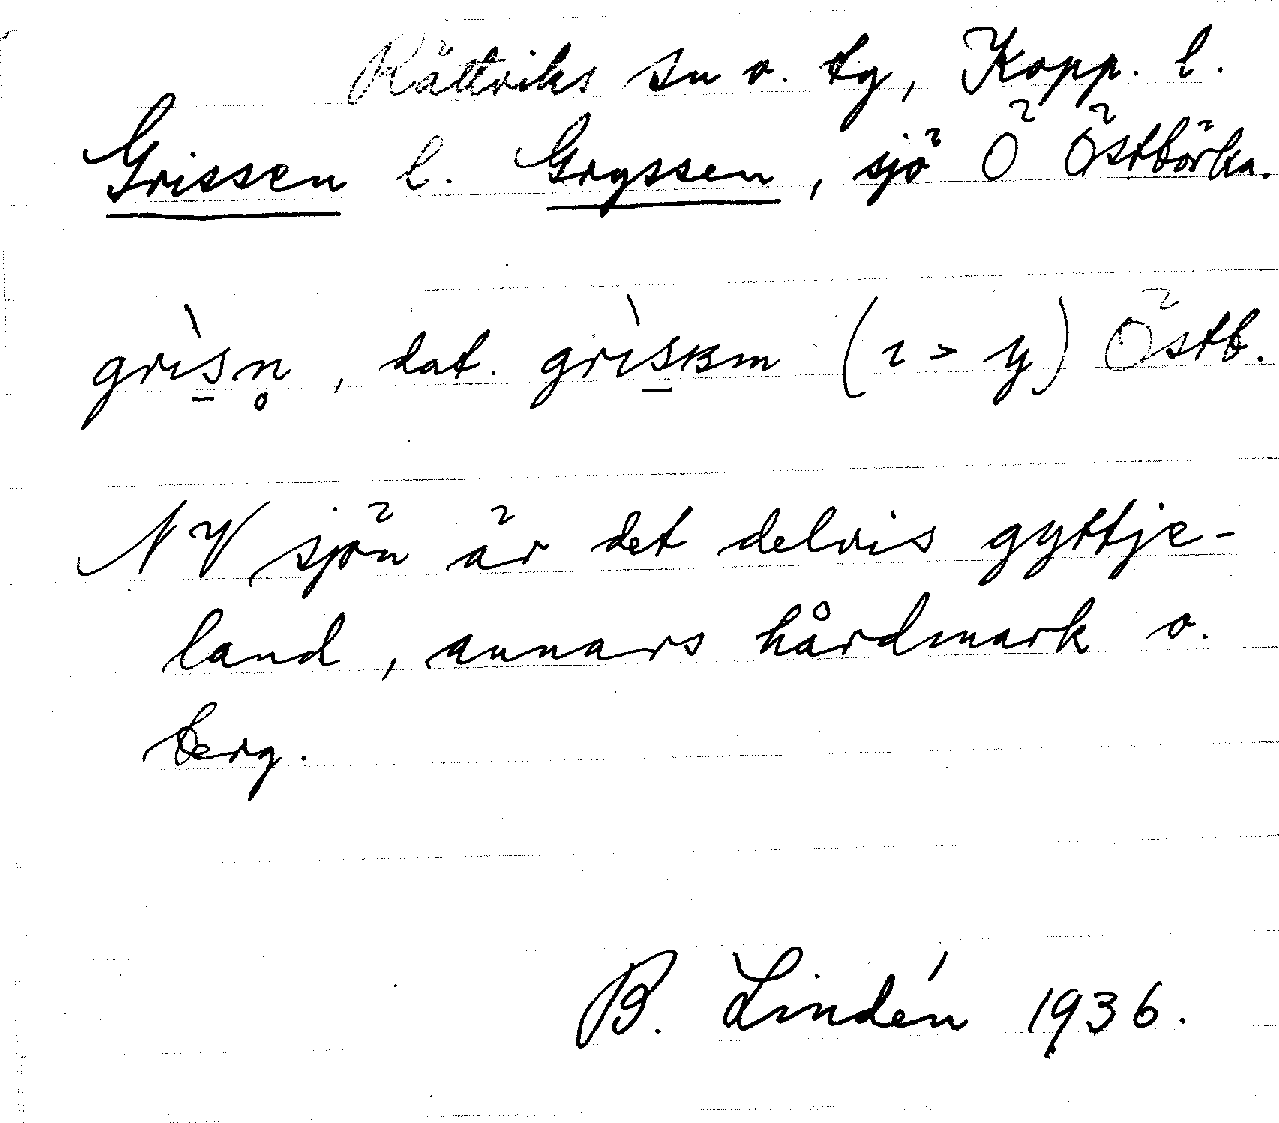 Rättviks sn o. tg, Kopp. l.
Grissen l. Gryssen, sjö Ö Östbörka.
grìs̲n̥, dat. grìs̲ɪsm (ɪ > y) Östb.
NV sjön är det delvis gyttje-
land, annars hårdmark o.
berg.
B. Lindén 1936.